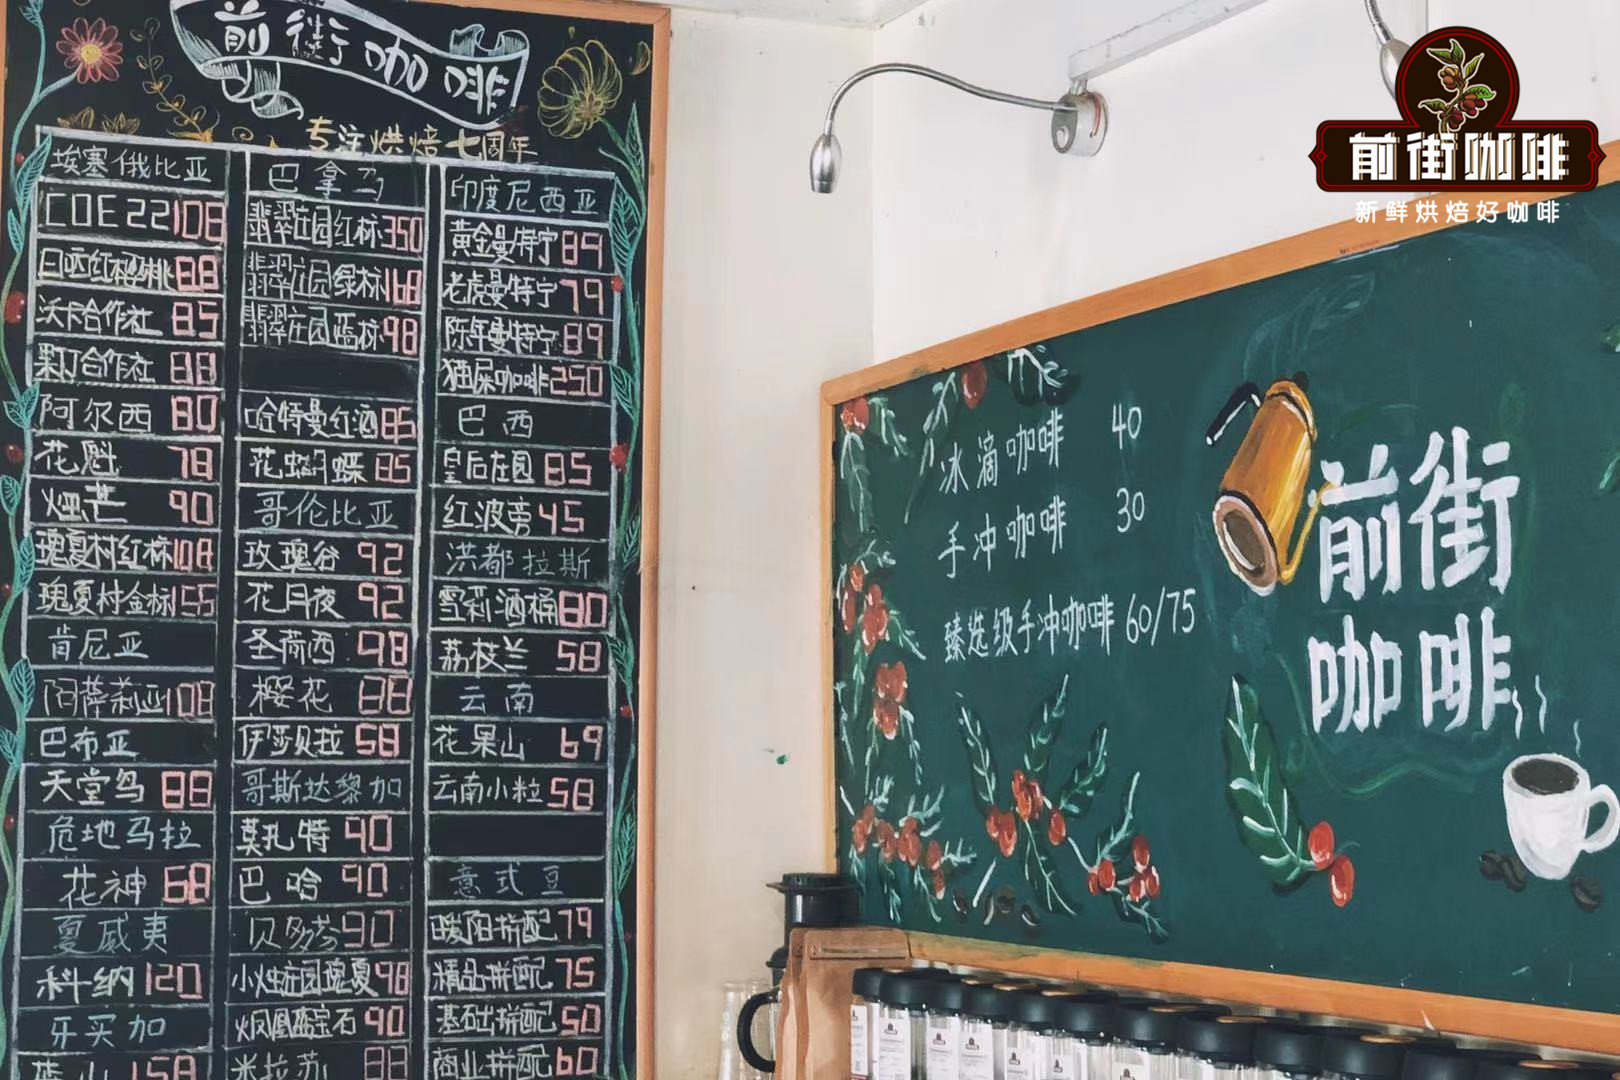 前街咖啡
专注烘焙七周年
埃塞俄比亚
COE 22 108
日晒红樱桃 88
沃卡合作社 85
果丁合作社 88
阿尔西 80
花魁 78
烟芒 90
瑰夏村红标 108
瑰夏村金标 155
肯尼亚
阿萨莉亚 108
巴布亚
天堂鸟 88
危地马拉
花神 68
夏威夷
科纳 120
牙买加
蓝山 158
巴拿马
翡翠庄园红标 350
翡翠庄园绿标 168
翡翠庄园蓝标 98
哈特曼红酒 85
花蝴蝶 85
哥伦比亚
玫瑰谷 92
花月夜 92
圣荷西 98
樱花 88
伊莎贝拉 58
哥斯达黎加
莫扎特 90
巴哈 90
贝多芬 90
小烛庄园瑰夏 98
火凤凰蓝宝石 90
米拉苏 88
印度尼西亚
黄金曼特宁 89
老虎曼特宁 79
陈年曼特宁 89
猫屎咖啡 250
巴西
皇后庄园 85
红波旁 45
洪都拉斯
雪莉酒桶 80
荔枝兰 58
云南
花果山 69
云南小粒 58
意式豆
暖阳拼配 79
精品拼配 75
基础拼配 50
商业拼配 60
冰滴咖啡 40
手冲咖啡 30
臻选级手冲咖啡 60/75
前街
咖啡
前街咖啡
新鲜烘焙好咖啡